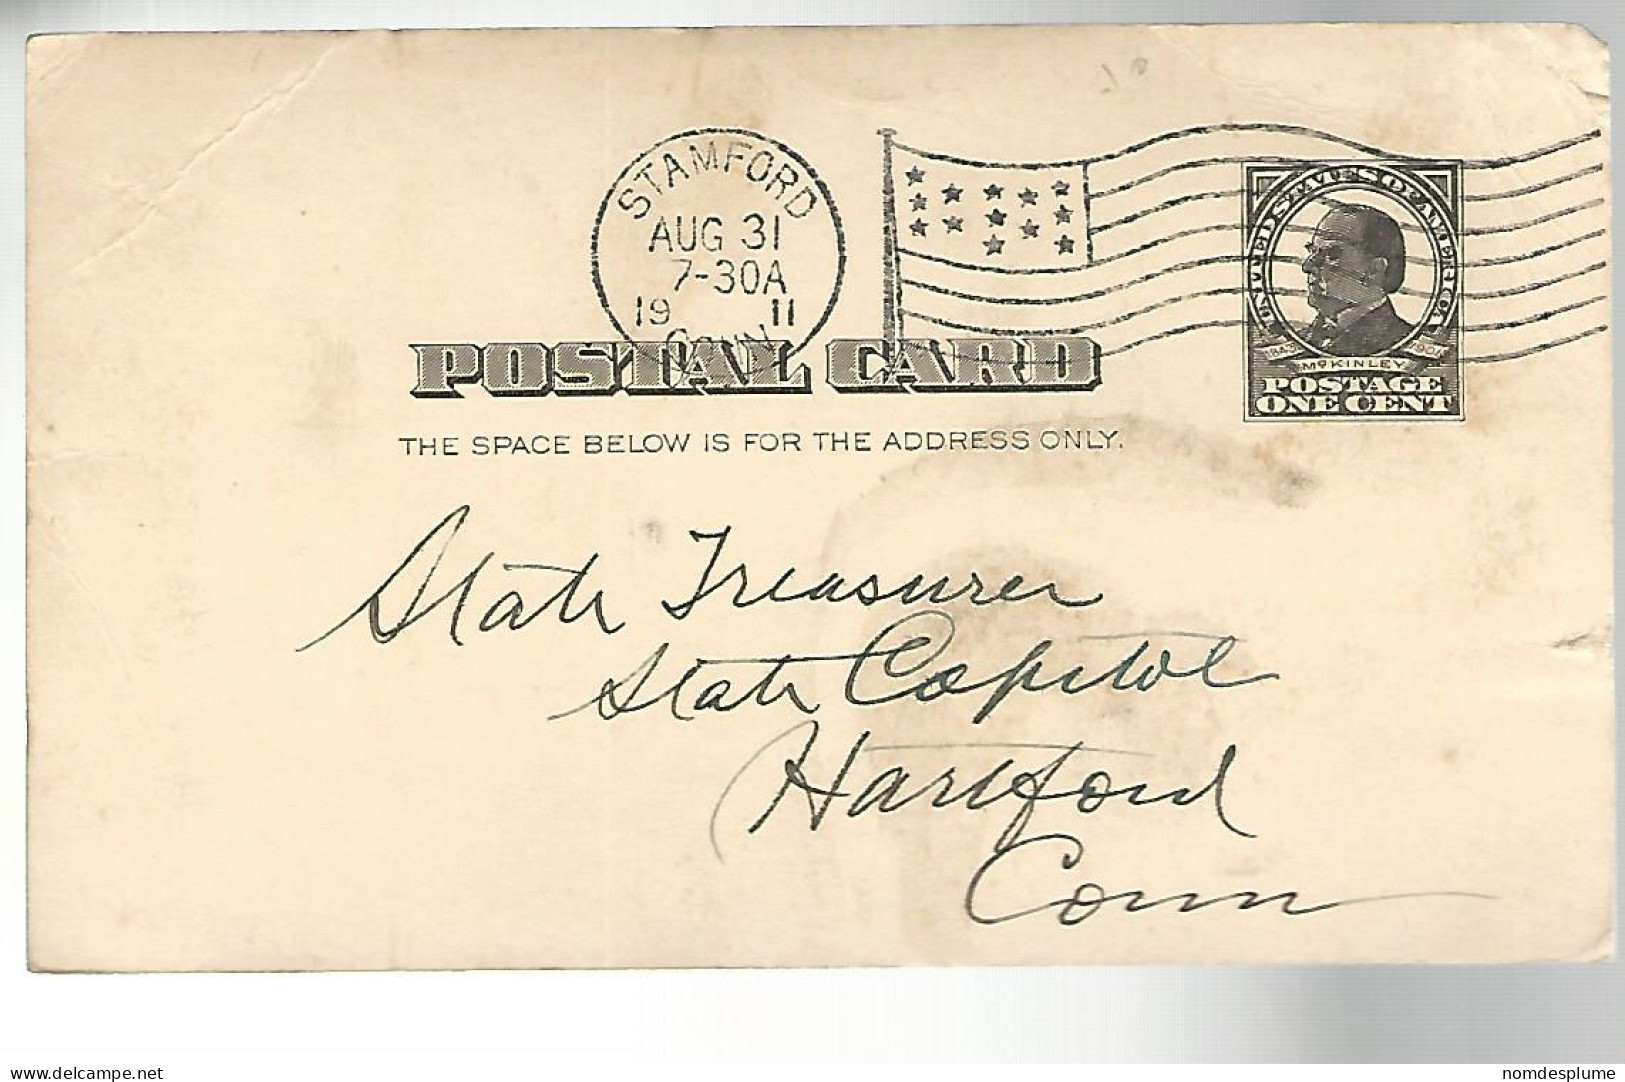 STAMFORD
AUG 31
7-30A
19 11
CONN
UNITED STATES OF AMERICA
1843 McKINLEY 1901
POSTAGE
ONE CENT
POSTAL CARD
THE SPACE BELOW IS FOR THE ADDRESS ONLY.
State Treasurer
State Capitol
Hartford
Conn
www.delcampe.net/nomdesplume